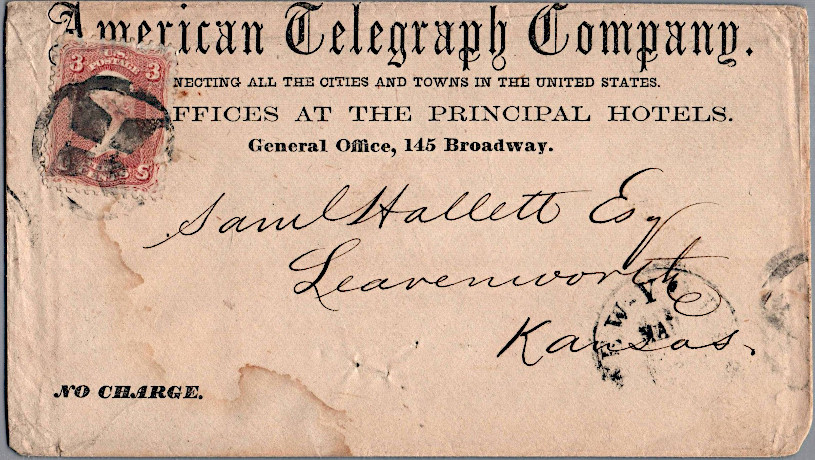 American Telegraph Company.
NECTING ALL THE CITIES AND TOWNS IN THE UNITED STATES.
FFICES AT THE PRINCIPAL HOTELS.
General Office, 145 Broadway.
3 U.S. 3
POSTAGE
Saml Hallett Esq
Leavenworth
Kansas.
NEW-YO
MA
NO CHARGE.